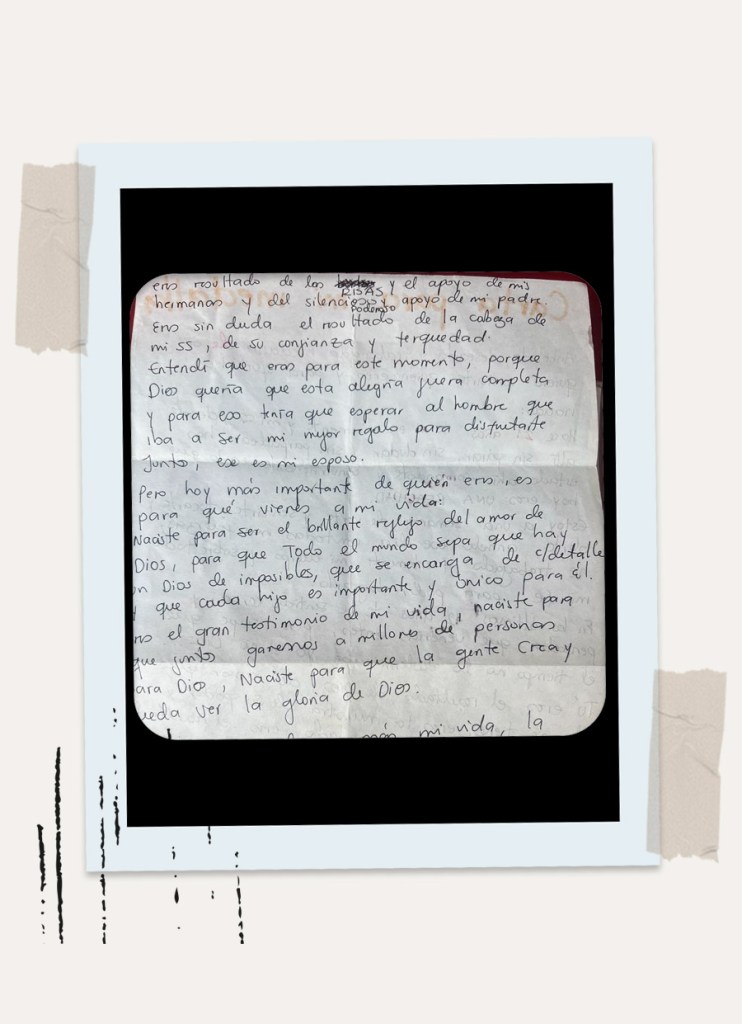 eres resultado de las RISAS y el apoyo de mis
hermanas y del silencioso y poderoso apoyo de mi padre.
Eres sin duda el resultado de la cabeza de
mi SS, de su confianza y terquedad.
Entendí que eras para este momento, porque
Dios quería que esta alegria fuera completa
y para eso tenía que esperar al hombre que
iba a ser mi mejor regalo para disfrutarte
Junto, ese es mi esposo.
Pero hoy más importante de quién eres, es
para qué vienes a mi vida:
Naciste para ser el brillante reflejo del amor de
Dios, para que Todo el mundo sepa que hay
un Dios de imposibles, que se encarga de c/detalle
y que cada hijo es importante y único para Él.
el gran testimonio de mi vida, naciste para
que juntos ganemos a millones de personas
para Dios, Naciste para que la gente Crea y
pueda ver la gloria de Dios.
mi vida, la